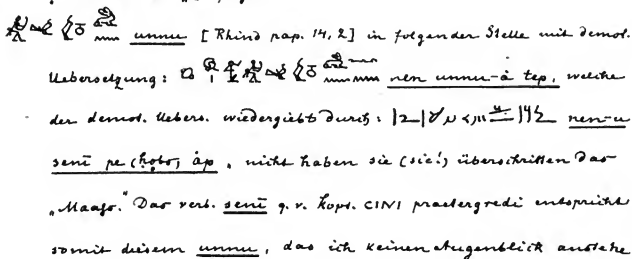 unnu [Rhind pap. 14, 2] in folgender Stelle mit demot.
Uebersetzung: nen unnu-à tep, welche
der demot. Uebers. wiedergiebt durch: nen-u
senī pe (hobo,) àp, nicht haben sie (sie!) überschritten das
„Maaſs.“ Das verb. senī q. v. kopt. ⲤⲒⲚⲒ praetergredi entspricht
somit diesem unnu, das ich keinen Augenblick anstehe